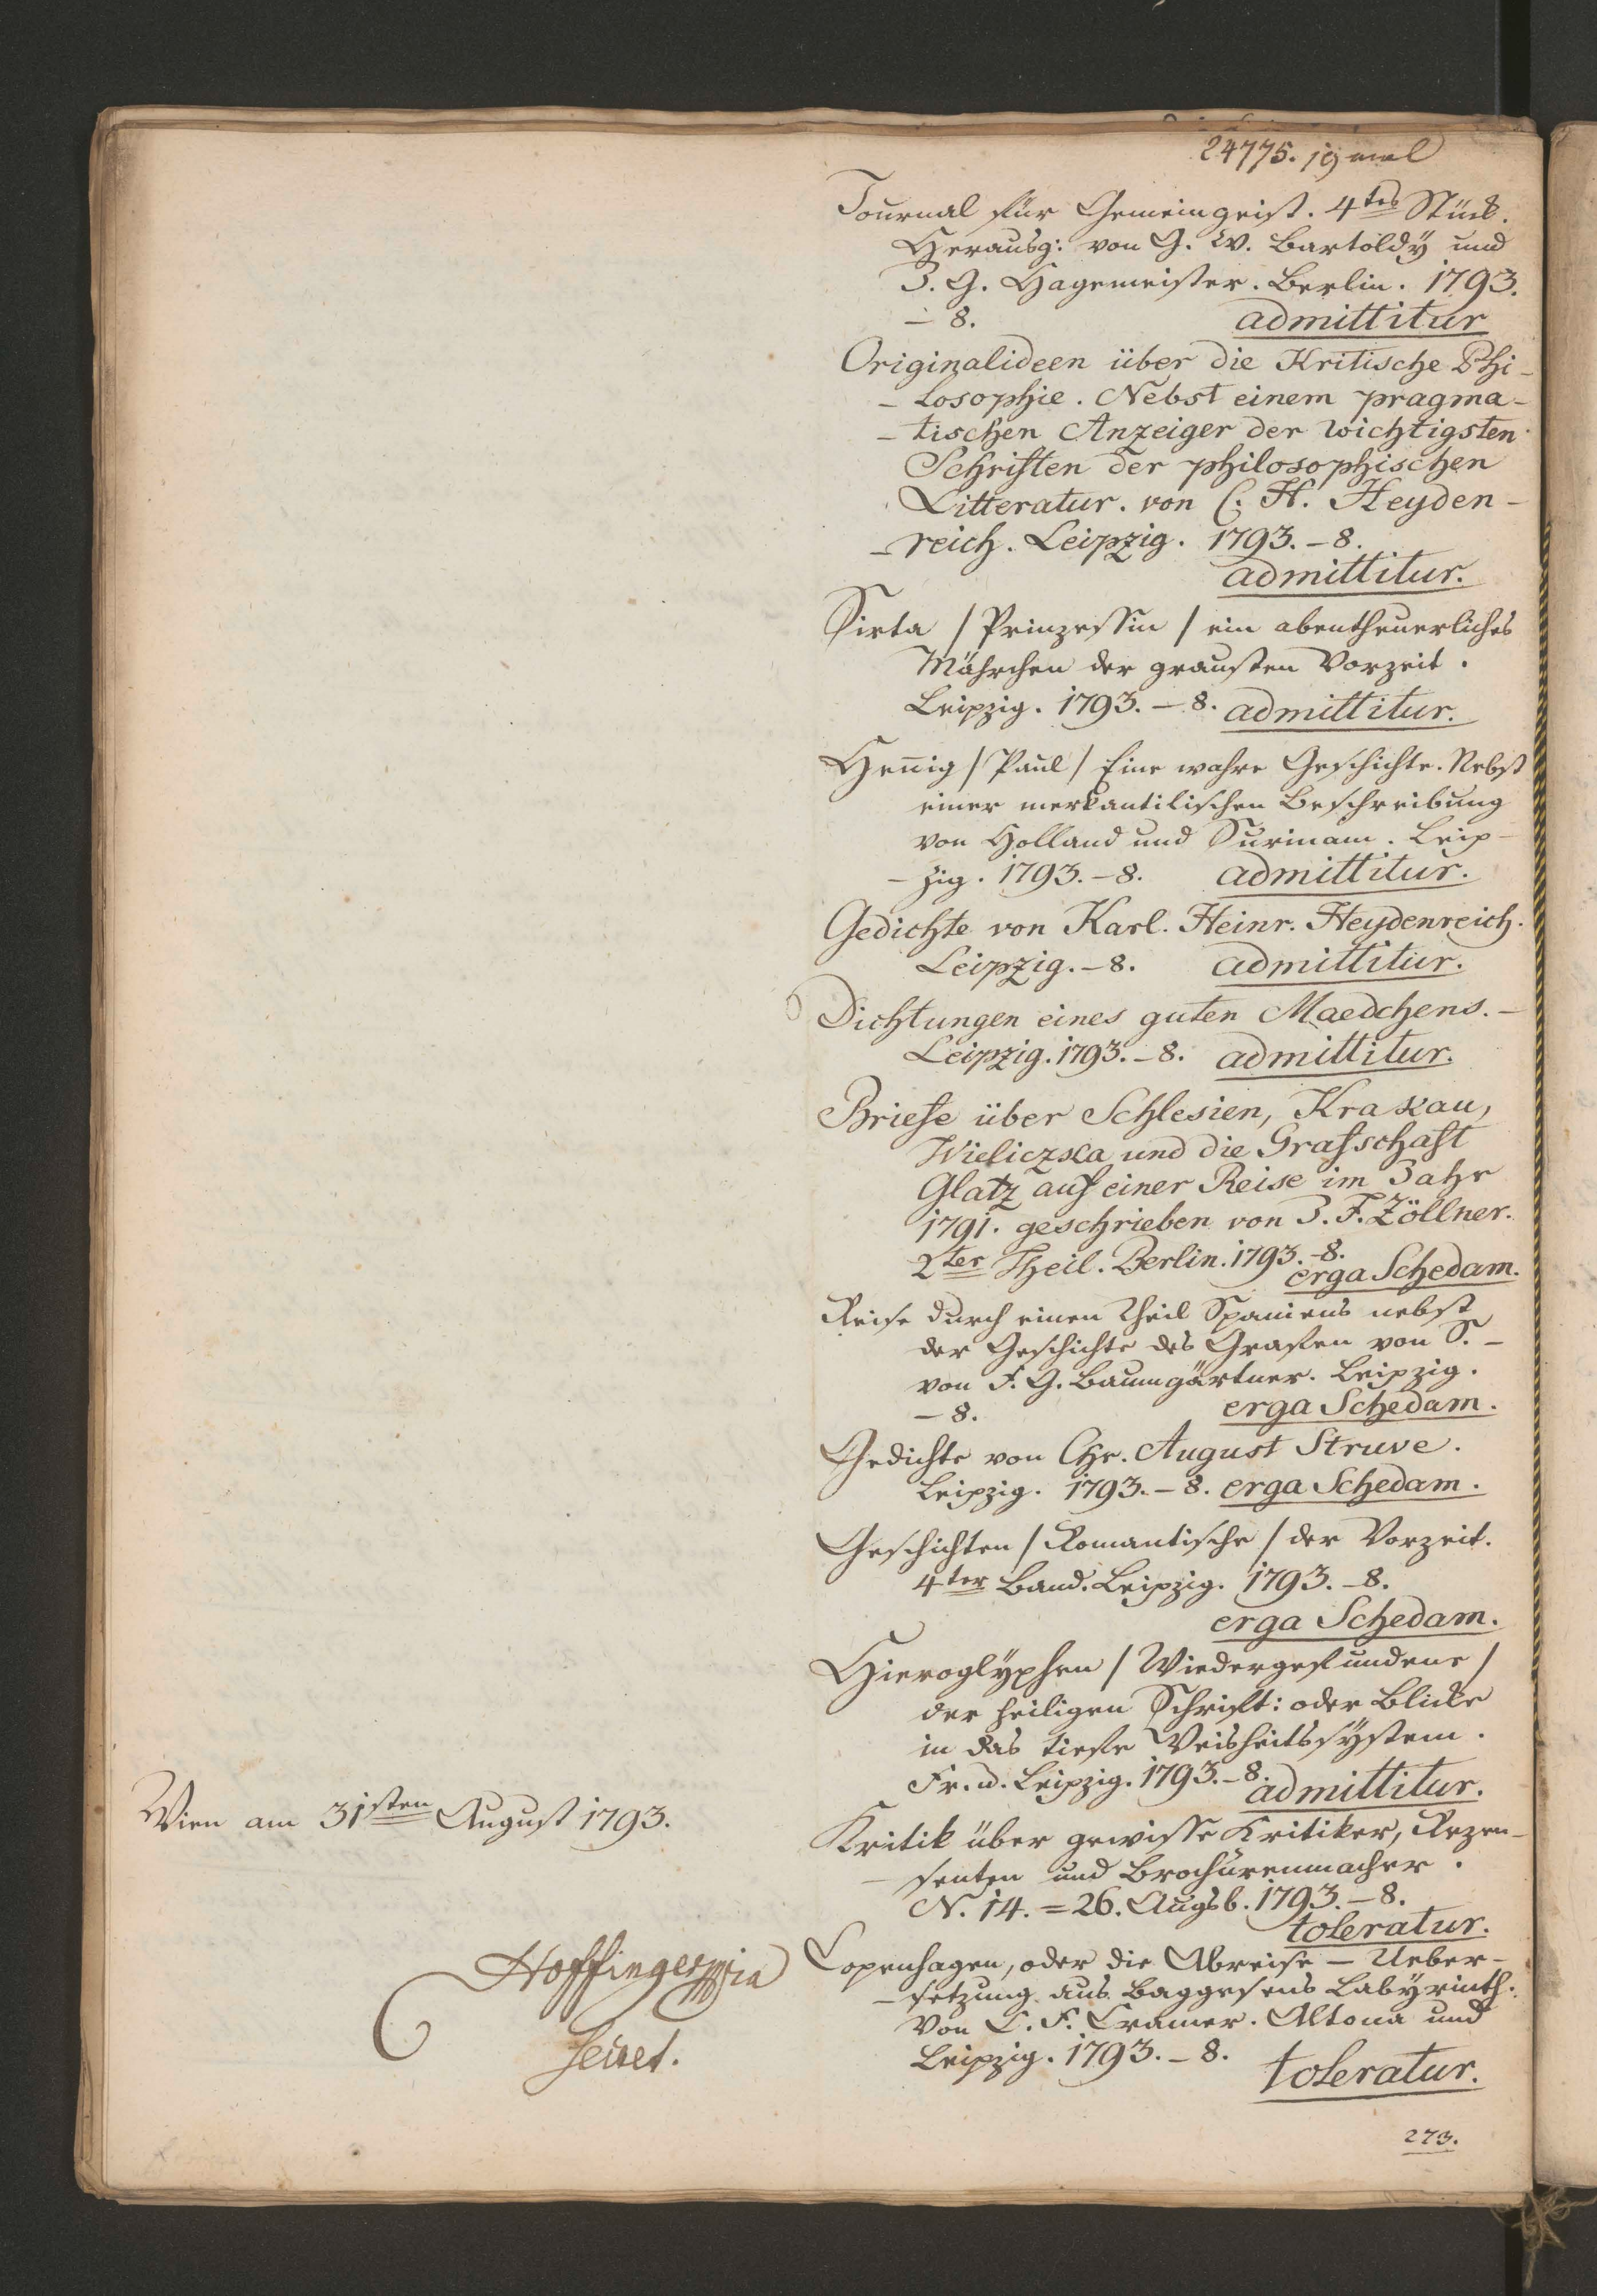 24775.
Journal für Gemeingeist. 4tes Stück.
Herausg: von G. W. Bartoldÿ und
J. G. Hagemeister. Berlin. 1793.
– 8. admittitur
Originalideen über die Kritische Phi-
-losophie. Nebst einem pragma-
-tischen Anzeiger der wichtigsten
Schriften der philosophischen
Litteratur. von C. H. Heyden-
-reich. Leipzig. 1793. – 8.
admittitur.
Sirta / Prinzessin / ein abentheuerliches
Mährchen der grausten Vorzeit.
Leipzig. 1793. – 8. admittitur.
Heñig / Paul / Eine wahre Geschichte. Nebst
einer merkantilischen Beschreibung
von Holland und Surinam. Leip-
-zig. 1793. – 8. admittitur.
Gedichte von Karl. Heinr. Heydenreich.
Leipzig. – 8. admittitur.
Dichtungen eines guten Maedchens. –
Leipzig. 1793. – 8. admittitur.
Briefe über Schlesien, Krakau,
Wieliczka und die Grafschaft
Glatz auf einer Reise im Jahr
1791. geschrieben von J. F. Zöllner.
2ter Theil. Berlin. 1793. – 8.
erga Schedam.
Reise durch einen Theil Spaniens nebst
der Geschichte des Grafen von S. –
von F. G. Baumgärtner. Leipzig.
– 8. erga Schedam.
Gedichte von Chr. August Struve.
Leipzig. 1793. – 8. erga Schedam.
Geschichten / Romantische / der Vorzeit.
4ter Band. Leipzig. 1793. – 8.
erga Schedam.
Hieroglÿphen / Wiedergefundene /
der heiligen Schrift: oder Blicke
in das tiefe Weisheitssÿstem.
Fr. u. Leipzig. 1793. – 8.
admittitur.
Kritik über gewisse Kritiker, Rezen-
-senten und Brochürenmacher.
N. 14. = 26. Augsb. 1793. – 8.
toleratur.
Copenhagen, oder die Abreise – Ueber-
-setzung aus Baggesens Labÿrinth.
Von C. F. Cramer. Altona und
Leipzig. 1793. – 8.
toleratur.
273.
Wien am 31sten August 1793.
Hoffinger